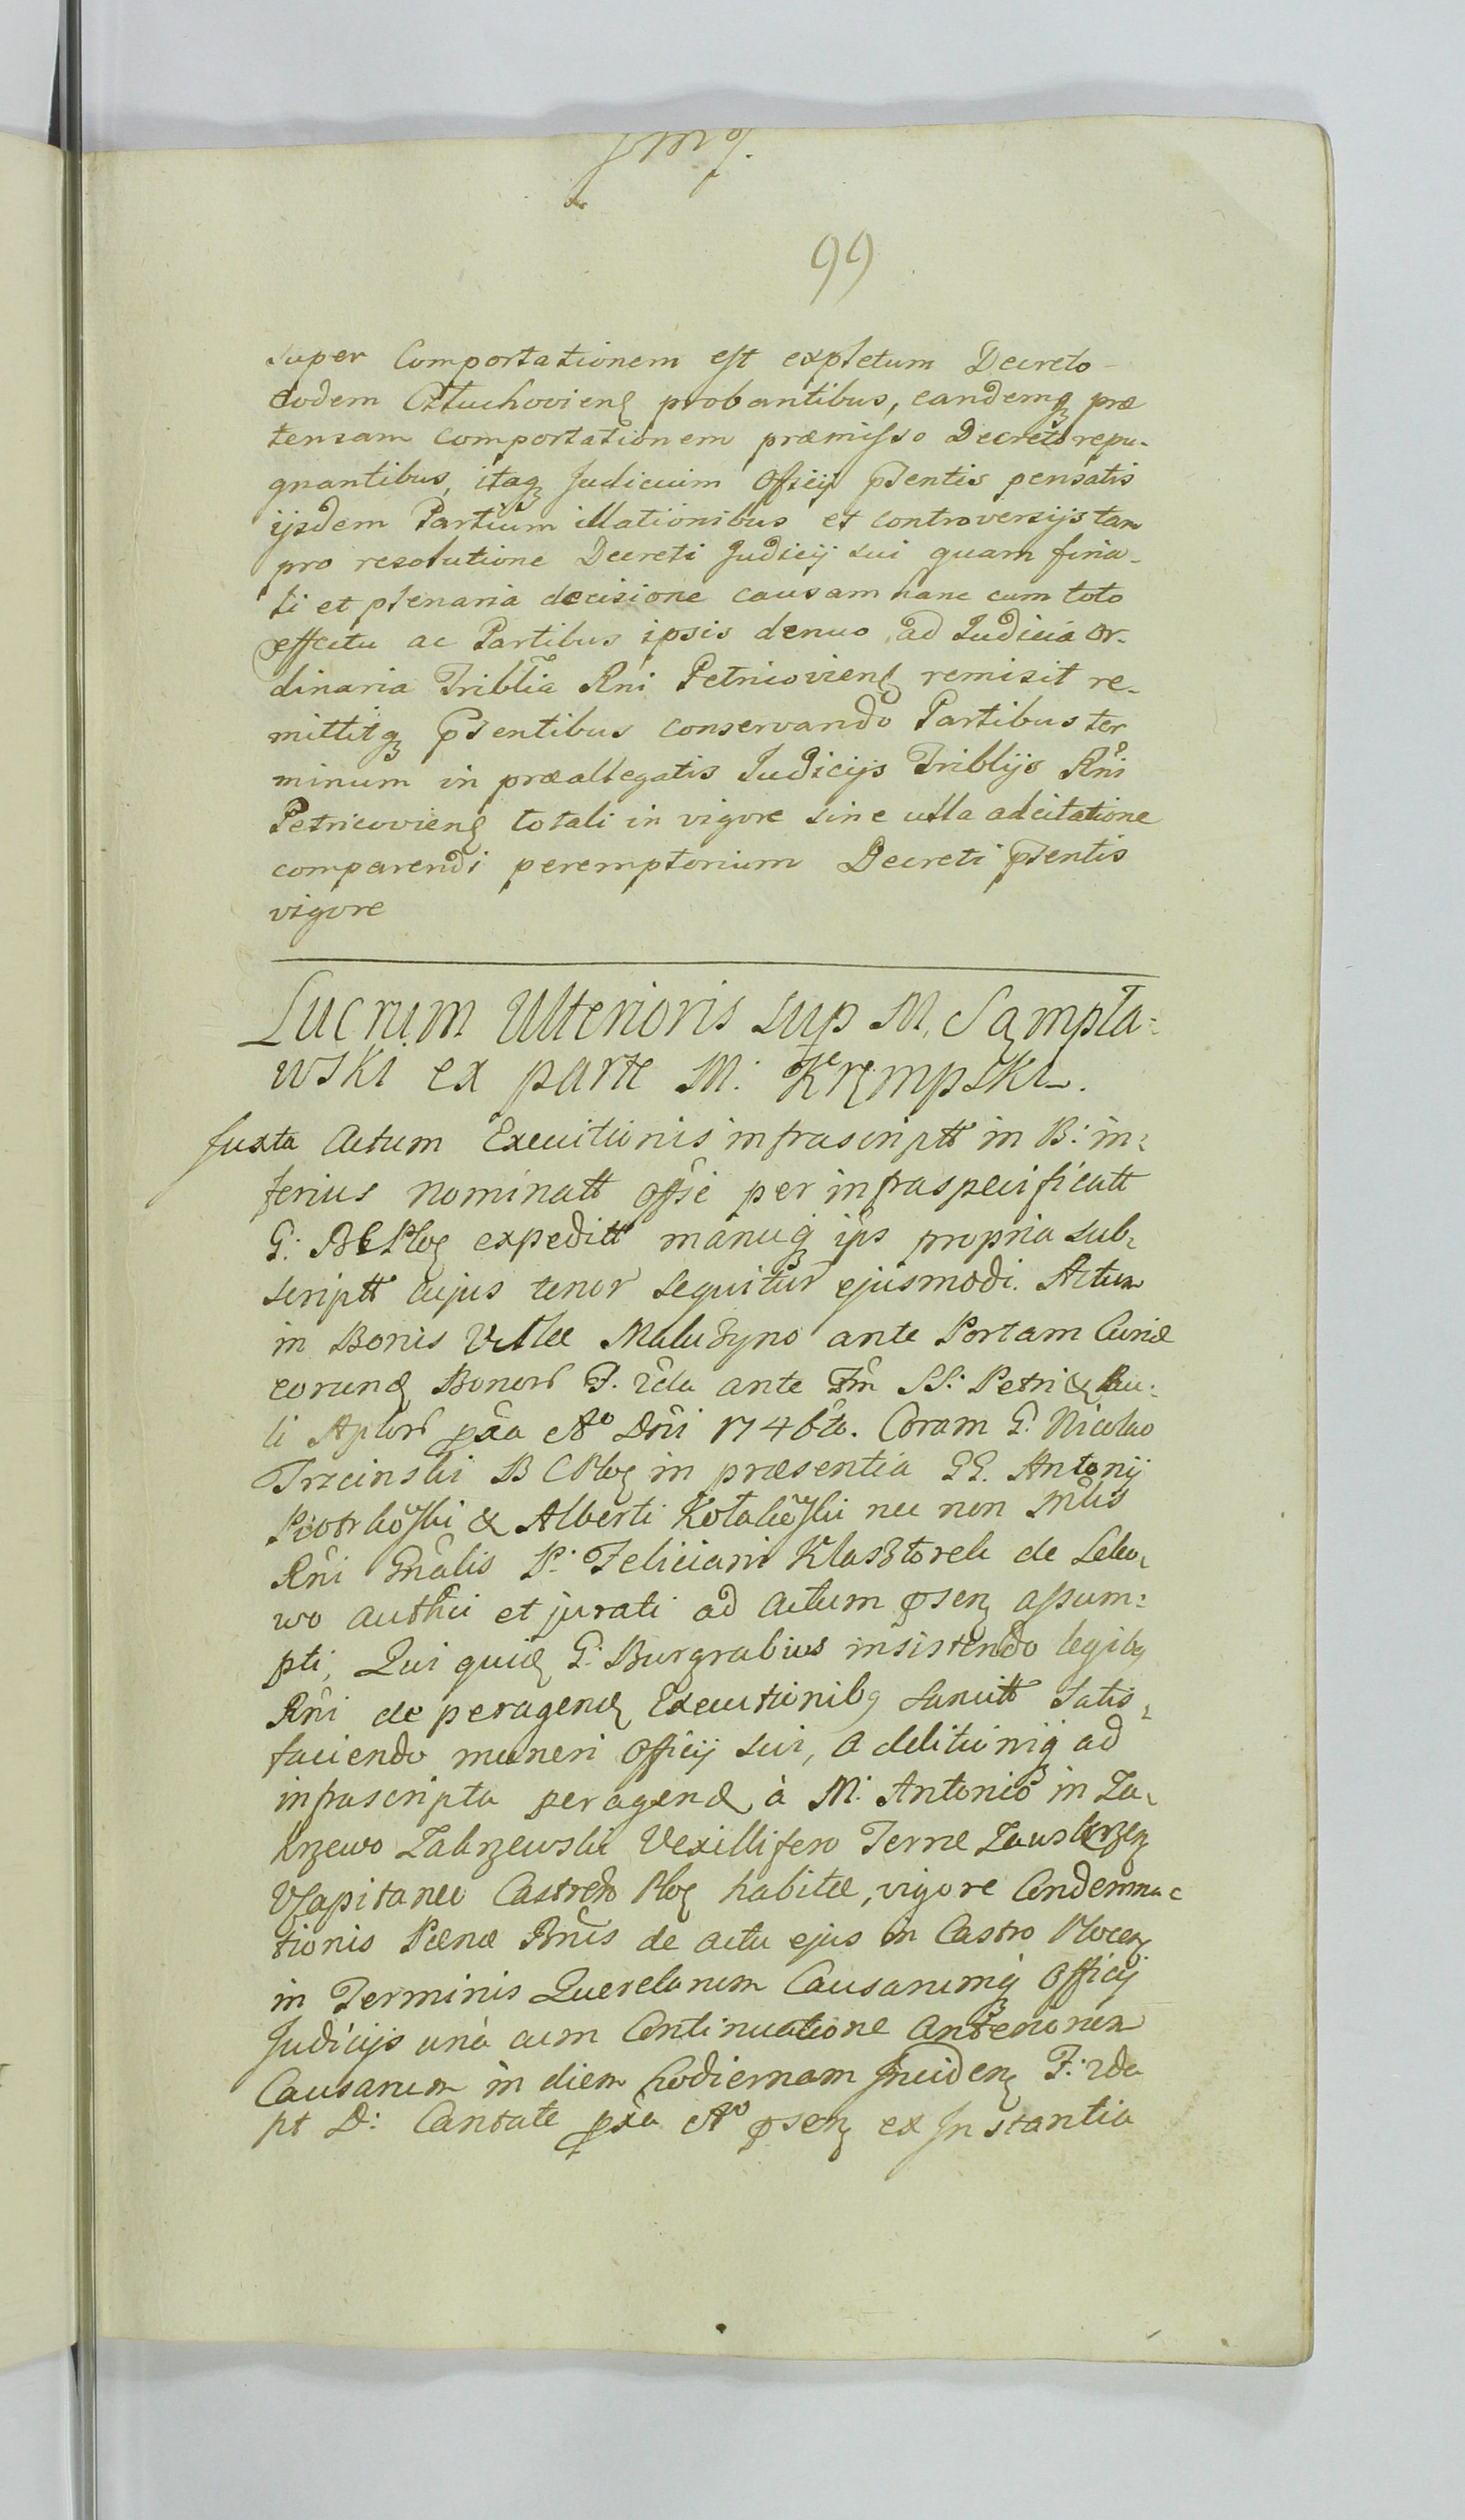 99
super Comportationem est expletum Decreto
eodem Człuchovieng probantibus, eandemq præ
tensam comportationem præmisso Decreto repu-
gnantibus, itaq Judicium Officij pstentis pensatis
ijsdem Partium illationibus et controversijs tam
pro resolutione Decreti Judicij sui quam fina-
li et plenaria decisione causam hanc cum toto
effectu ac Partibus ipsis denuo ad Judicia or-
dinaria Triblia Rni Petricovieng remisit re-
mittitq pstentibus conservando Partibus ter
minum in præallegatis Judicijs Triblijs Rni
Petricovieng totali in vigore sine ulla adcitatione
comparendi peremptorium Decreti pstentis
vigore
Lucrum Ulterioris sup M. Sąmpła=
wski ex parte M: Kręmpski.
Juxta Actum Executionis infrascriptt in B: in=
ferius nominatt offsi per infraspecificatt
G: BCPlog expeditt manuq ips propria sub=
scriptt cujus tenor sequitur ejusmodi. Actum
in Bonis Villæ Maluszyno ante Portam Curiæ
eorund Bonor F. 2da ante Fm SS: Petri & Pau=
li Aplor pxa Ao Dni 1746to. Coram G. Nicolao
Trzcinski B C Plog in præsentia GG. Antonij
Piotrkowski & Alberti Kotakowski nec non Mlis
Rni Gnalis P: Feliciani Klasztorek de Leko=
wo authci et jurati ad actum psen assum=
pti, Qui quid G: Burgrabius insistendo legibg
Rni de peragend Executionibg sancitt satis=
faciendo muneri officij sui, a delitionijq ad
infrascripta peragend à M: Antonio in Za=
krzewo Zakrzewski Vexillifero Terræ Zauskrzen
VCapitaneo Castren Plog habitæ, vigore Condemna=
tionis Pænæ Bnis de actu ejus in Castro Plocen
in Terminis Querelarum Causarumq officij
Judicijs unà cum Continuatione Anteriorum
Causarum in diem hodiernam Inciden F: 2da
pt D: Cantate pxa Ao psen ex Instantia